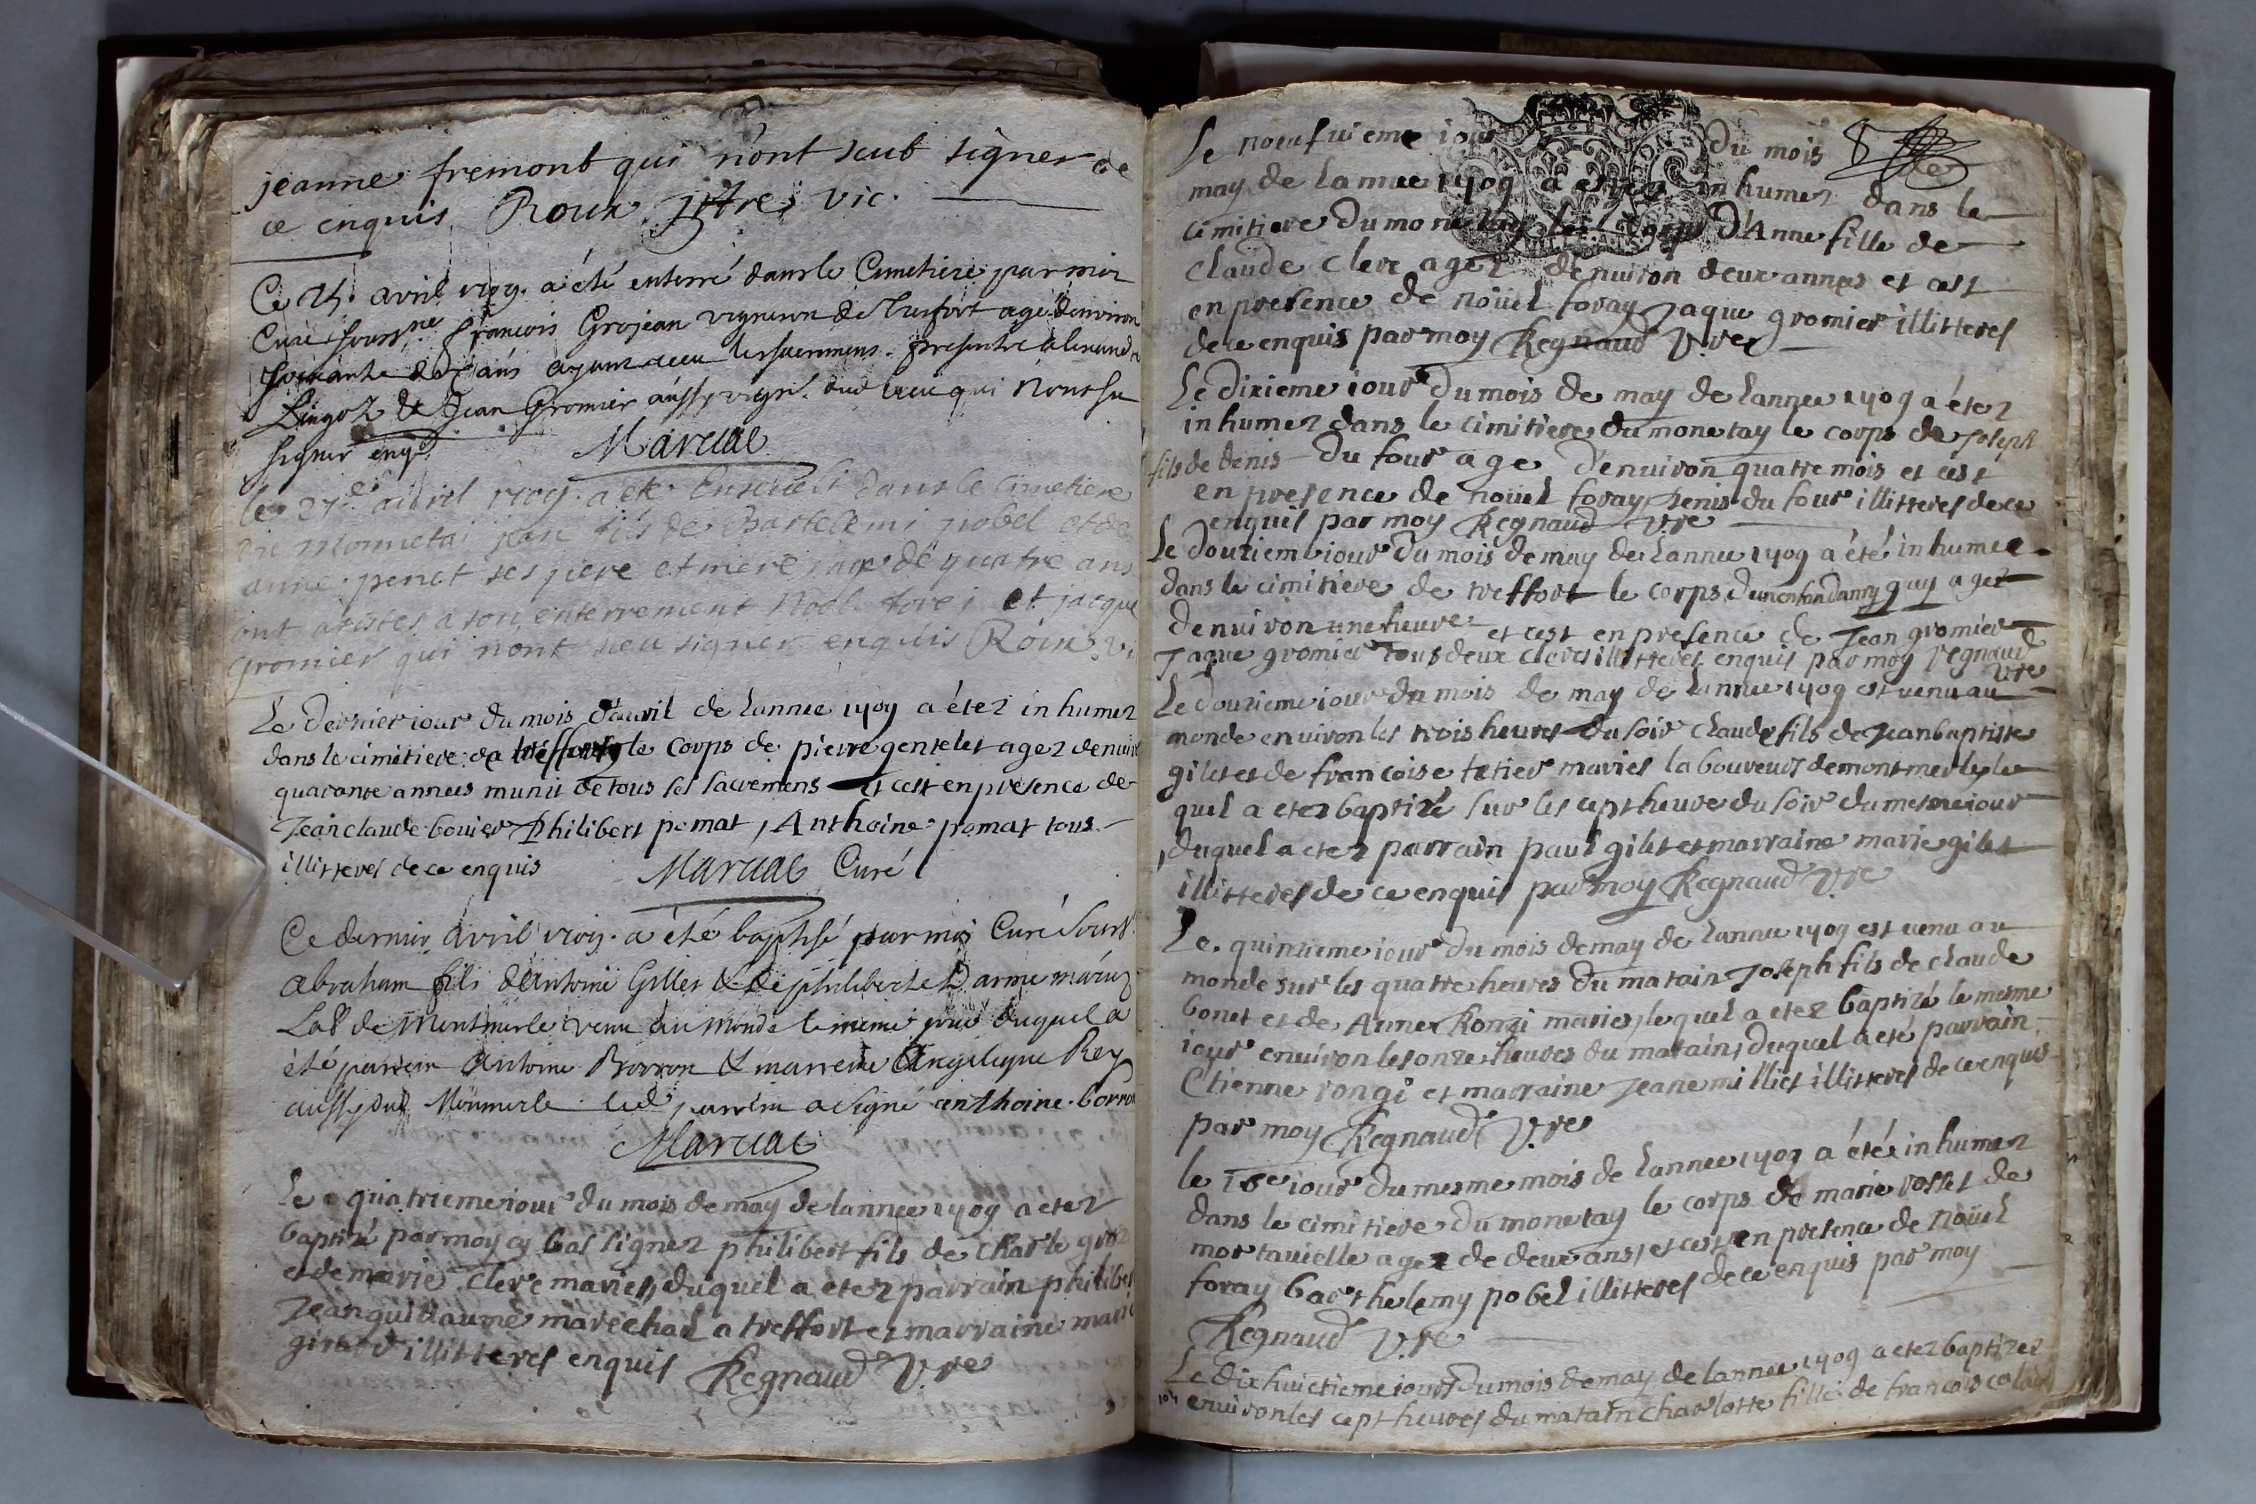 jeanne fremont qui n'ont scut signer de
ce enquis Roux ptre vic.
Ce 25. avril 1709. a été enterré dans le Cimetiere par moi
Curé souss.ne francois Grosjean vigneron de Treffort agé d'environ
soixante et dix ans ayant receu les sacremens. presents
Lingoz & Jean Gromier aussy vign. dud lieu qui n'ont su
signer enq.
Marval
le 27.e avril 1709. a eté enseveli dans le cimetiere
du Monnetai jean fils de Bartelemi pobel et de
anne penet ses pere et mere agé de quatre ans
ont asistés a son enterrement Noel forei et jacque
gromier qui n'ont sceu signer enquis Roux vi
Le dernier iour du mois d'auvil de Lannee 1709 a étez inhumez
dans le cimitiere de treffort le corps de pierre gentelet agez denuiro
quarante annees munit de tous les sacremens et cest en presence de
Jean claude bouier Philibert pomat, Anthoine pomat tous
illitteres de ce enquis Marval Curé
Ce dernier Avril 1709. a été baptisé par moi Curé souss.
Abraham fils d'Antoine Gillet & de philiberte Darme mariez
Lab.r de Montmerle venu au monde le meme jour duquel a
été parrein Antoine Borron & marreine Angelique Rey
aussy dud Monmerle led parrein a signé anthoine borro
Marval
Le quatrieme iour du mois de may de lannee 1709 a etez
baptizé par moy cy bas signez philibert fils de charle groz
et de marie clerc maries, duquel a etez parrain philiber
Jean guillaume maréchal a treffort et marraine marie
girard illitteres enquis Regnaud V.re
Le noeufuieme iour du mois de
8
may de Lannee 1709 a etez inhumez dans le
cimitiere du monetay le corps d'Anne fille de
claude clerc agez denuiron deux annees et cest
en presence de noüel foray Jaque gromier illitteres
de ce enquis par moy Regnaud V.re
Le dixieme iour du mois de may de lannee 1709 a étez
inhumez dans le cimitiere du monetay le corps de Joseph
fils de denis du four age denuiron quatre mois et cest
en presence de noüel foray Denis du four illitteres de ce
enquis par moy Regnaud V.re
Le douziem iour du mois de may de Lannee 1709 a été inhumee
dans le cimitiere de treffort le corps dun enfan danry guy agez
denuiron une heure et cest en presence de Jean gromier
Jaque gromier tous deux clercs illitteres enquis par moy regnaud
V.re
Le douzieme iour du mois de may de Lannee 1709 est uenu au
monde enuiron les trois heures du soir claude fils de Jean baptiste
gilet et de francoise tetier maries laboureurs de montmerle, le
quel a etez baptizé sur les cept heure du soir du mesme iour
duquel a etez parrain paul gilet et marraine marie gilet
illitteres de ce enquis par moy Regnaud V.re
Le quinzieme iour du mois de may de Lannee 1709 est uenu au
monde sur les quatre heures du matain Joseph fils de claude
bonet et de Anne Rongi maries, lequel a etez baptizé le mesme
iour enuiron les onze heures du matain, duquel a eté parrain
Etienne rongi et marraine Jeane milliet illitteres de ce enquis
par moy Regnaud V.re
le 16e iour du mesme mois de Lannee 1709 a été inhumez
dans le cimitiere du monetay le corps de marie rosset de
mortauielle agez de deux ans, et cest en presence de noüel
foray barthelemy pobel illitteres de ce enquis par moy
Regnaud V.re
Le dix huictieme iour du mois de may de lannee 1709 a etez baptizez
enuiron les cept heures du matain charlotte fille de francois